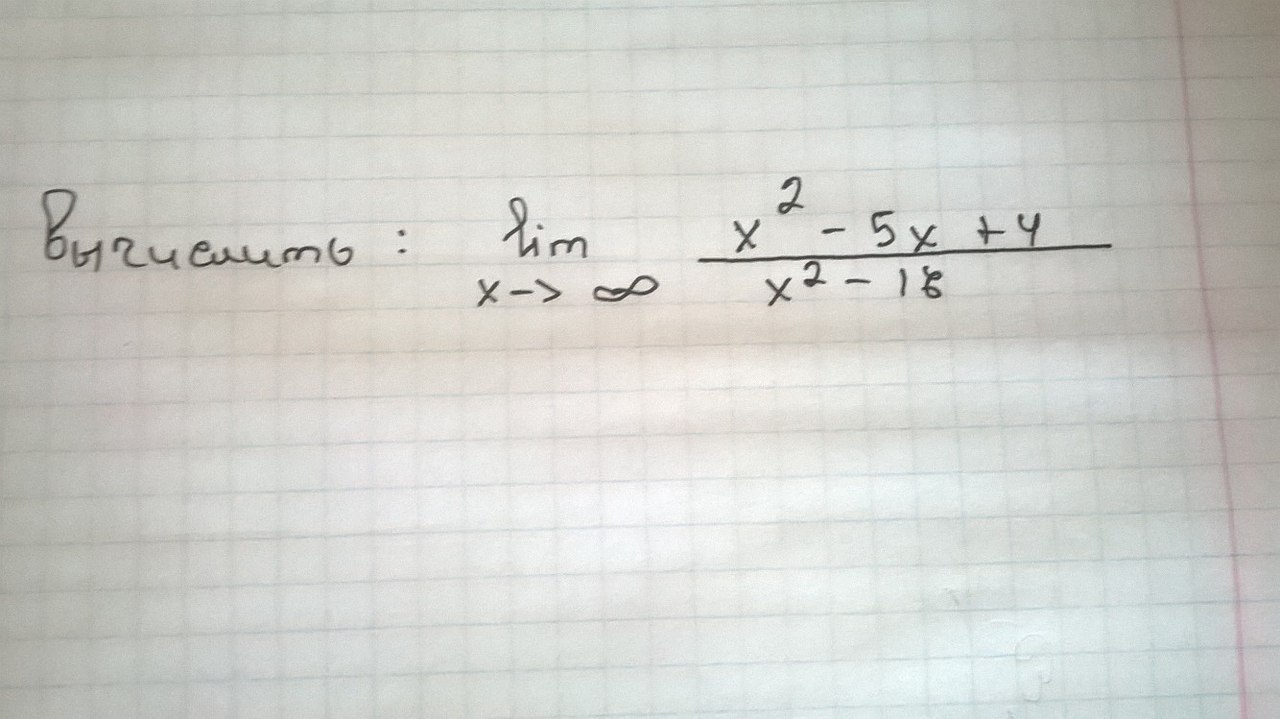 Вычислить : lim x -> ∞ x² - 5x + 4 / x² - 16